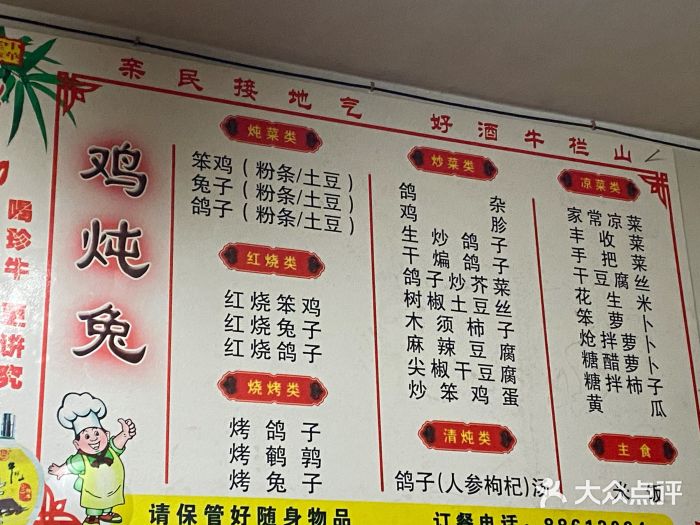 亲民接地气 好酒牛栏山
鸡炖兔
喝珍牛
讲究
炖菜类
笨鸡(粉条/土豆)
兔子(粉条/土豆)
鸽子(粉条/土豆)
红烧类
红烧笨鸡
红烧兔子
红烧鸽子
烧烤类
烤鸽子
烤鹌鹑
烤兔子
炒菜类
鸽杂
鸡胗
生炒鸽子
干煸鸽子
鸽子炒芥菜
树椒土豆丝
木须柿子
麻辣豆腐
尖椒干豆腐
炒笨鸡蛋
清炖类
鸽子(人参枸杞)汤
凉菜类
家常凉菜
丰收菜
手把菜
干豆腐丝
花生米
笨萝卜
炝拌萝卜
糖醋萝卜
糖拌柿子
黄瓜
主食
米饭
请保管好随身物品
订餐电话:
大众点评